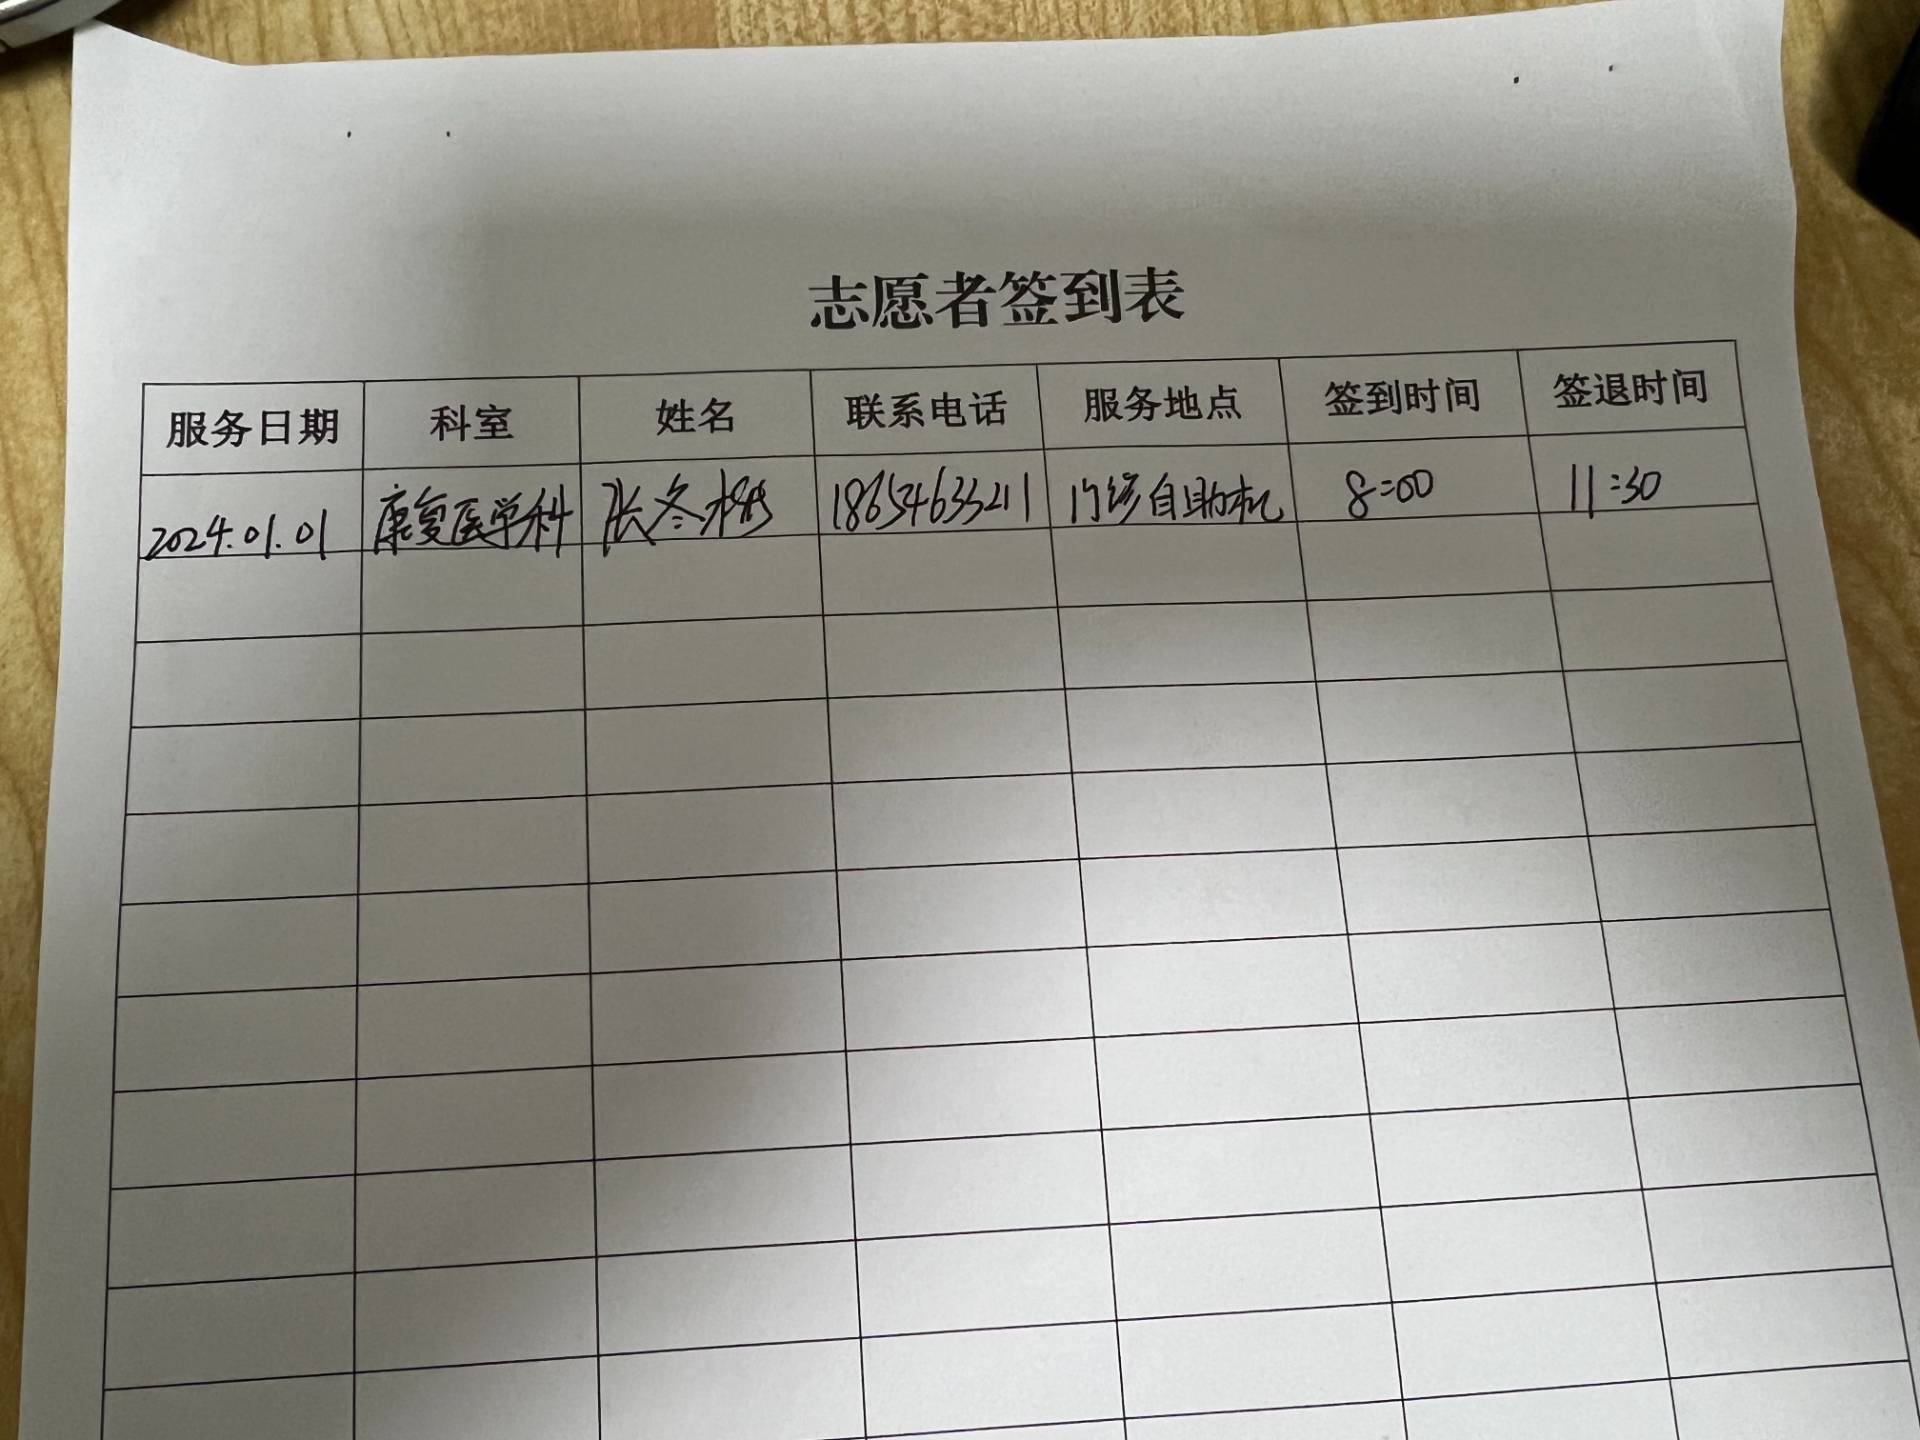 志愿者签到表
服务日期 科室 姓名 联系电话 服务地点 签到时间 签退时间
2024.01.01 康复医学科 张冬梅 18654633211 门诊自助机 8:00 11:30